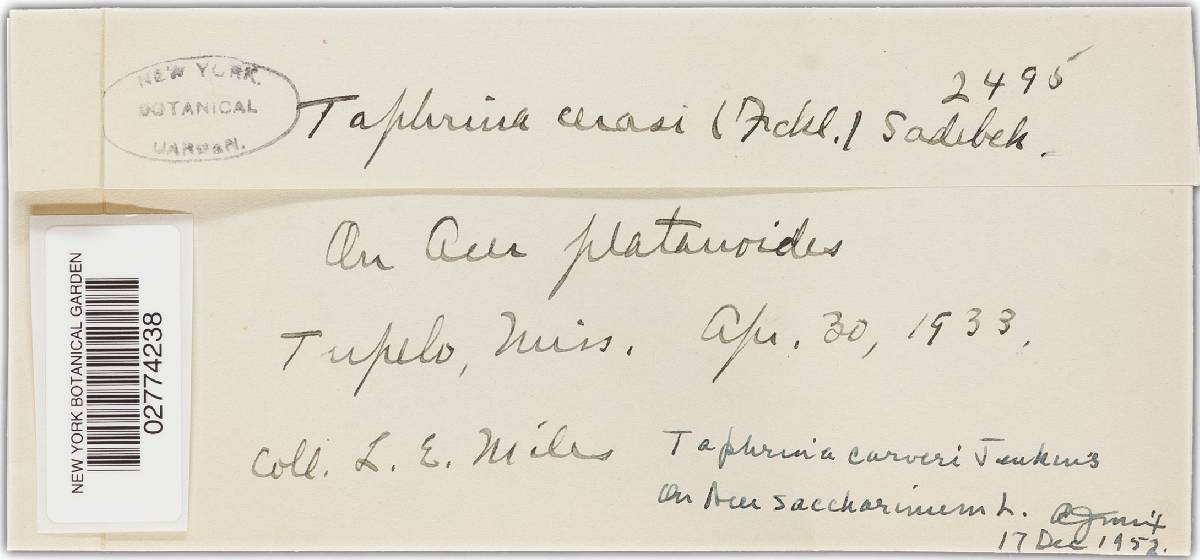 NEW YORK
BOTANICAL
GARDEN.
2495
Taphrina cerasi (Fckl.) Sadebek.
On Acer platanoides
Tupelo, Miss. Apr. 30, 1933.
Coll. L. E. Miles
Taphrina carveri Jenkins
On Acer saccharinum L.
AJMix
17 Dec 1952.
NEW YORK BOTANICAL GARDEN
02774238